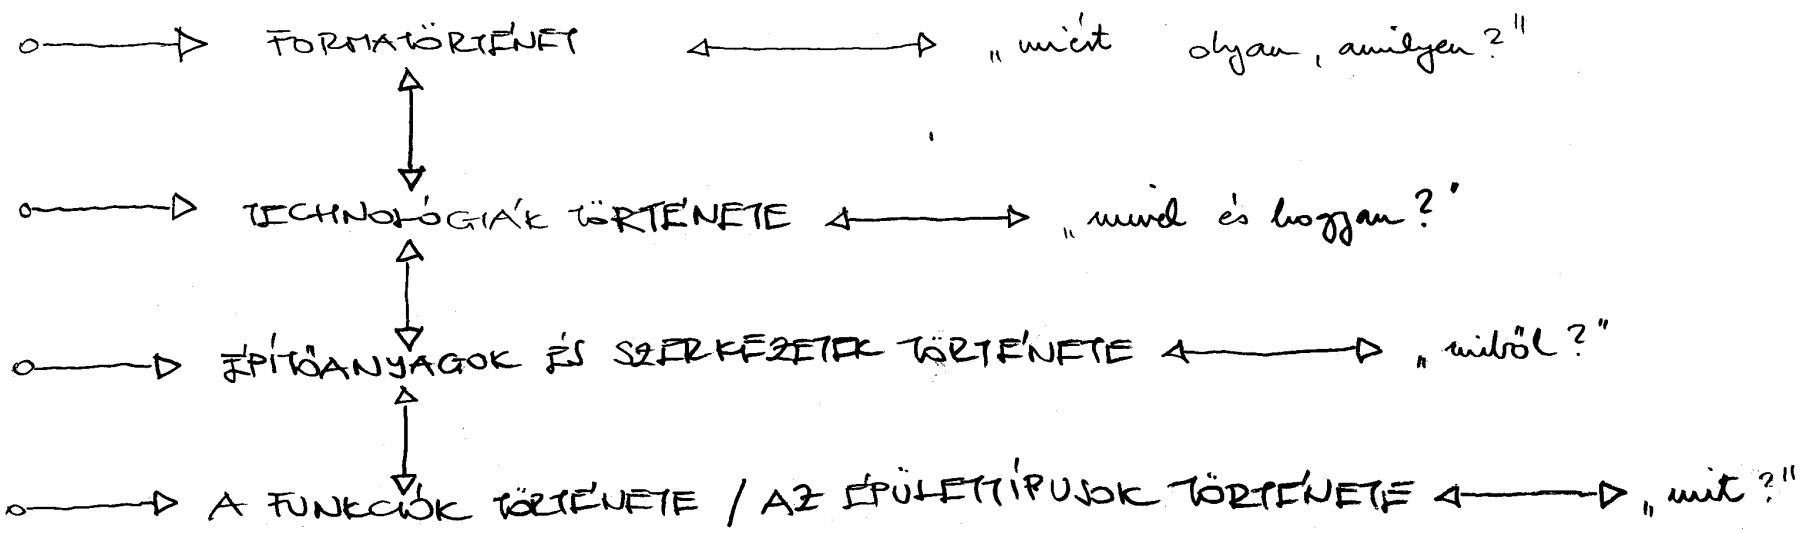 FORMATÖRTÉNET „miért olyan, amilyen?"
TECHNOLÓGIÁK TÖRTÉNETE „mivel és hogyan?"
ÉPÍTŐANYAGOK ÉS SZERKEZETEK TÖRTÉNETE „miből?"
A FUNKCIÓK TÖRTÉNETE / AZ ÉPÜLETTÍPUSOK TÖRTÉNETE „mit?"